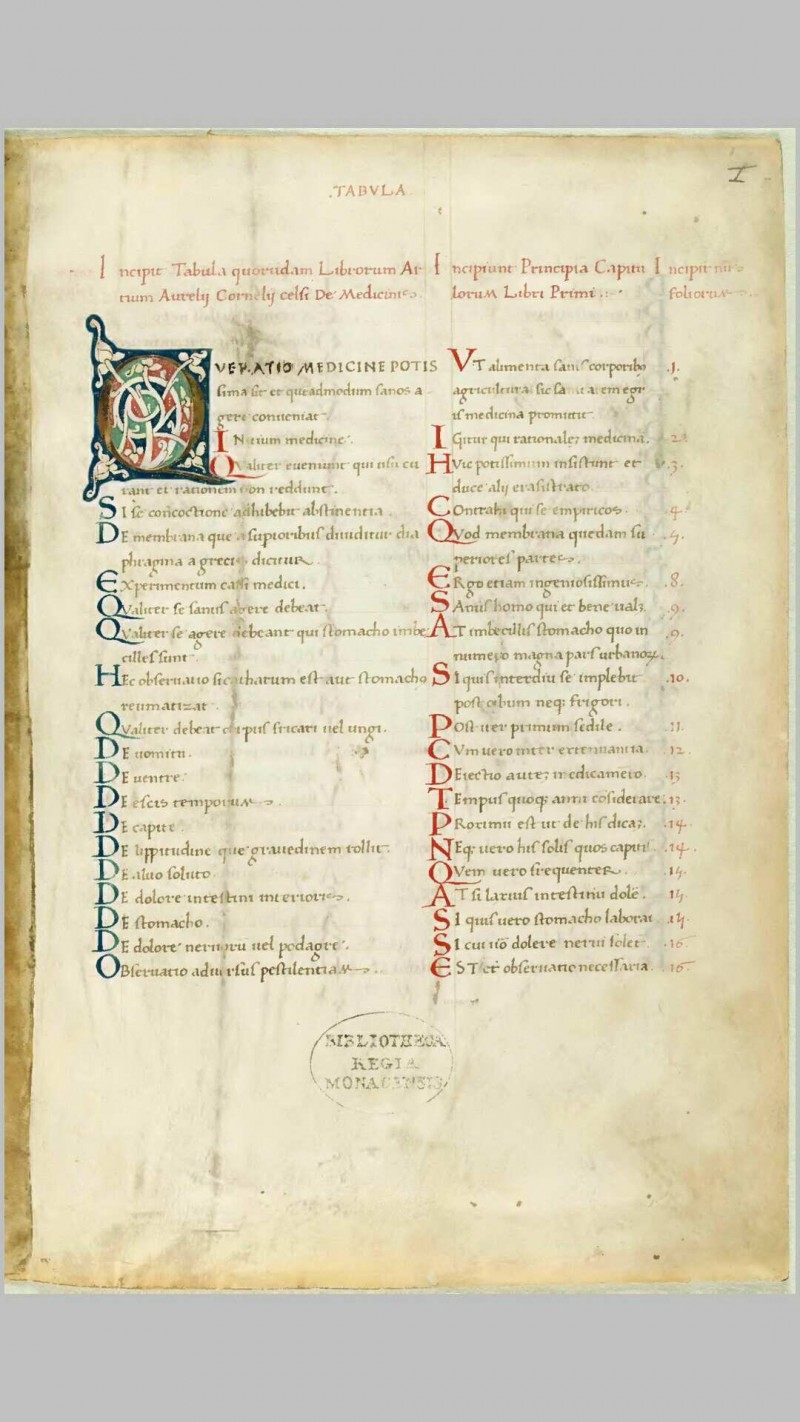 .TABVLA
I
Incipit Tabula quorundam Librorum Ar
tium Aurelij Cornelij celsi De Medicin
QVERATIO MEDICINE POTIS
sima sit et queadmodum sanos a
gere conueniat.
INitium medicine.
Qualiter eueniunt qui usu cu
rant et rationem non reddunt.
SI se concoctione adhibebit abstinentia.
DE membrana que a superioribus diuiditur dia
phragma a grecis dicitur
EXperimentum cassi medici.
QValiter se sanus agere debeat.
QValiter se agere debeant qui stomacho imbe
cilles sunt
HEc obseruatio sic thar um est aut stomacho
reumatizat
QValiter debeat corpus fricari uel ungi.
DE uomitu.
DE uentre.
DE escis temporum.
DE capite
DE lippitudine que grauedinem tollit.
DE aluo soluto
DE dolore intestini interioris.
DE stomacho.
DE dolore neruoru uel podagre.
OBseruatio aduersus pestilentiam.
Incipiunt Principia Capitu
lorum Libri Primi
VT alimenta sanis corporibo .1.
agricultura. sic sanitatem egr
is medicina promittit
IGitur qui rationale; medicina. 2
HVic potissimum insistunt et .3.
duce alij erasistrato
COntrahi qui se empiricos 4
QVod membrana quedam su .5.
periores partes
ERgo etiam ingeniosissimus .8.
SAnus homo qui et bene ual;. .9.
AT imbecillis stomacho quo in .9.
numero magna pars urbanorum.
SI quis interdiu se implebit .10.
post cibum neq; frigori.
POst iter primum sedile. .11.
CVm uero inter extenuantia. 12
DEiectio aute; medicameto 13
TEmpus quoq; anni cosiderare. .13.
PRoximu est ut de his dica;. .14.
NEq; uero his solis quos capitis .14.
QVem uero frequenter .15.
AT si laxius intestinu dole. .15.
SI quis uero stomacho laborat .15
SI cui uo dolere nerui solet 16
EST et obseruatio necessaria .16
Incipit nu
foliorum
BIBLIOTHECA
REGIA
MONACENSIS